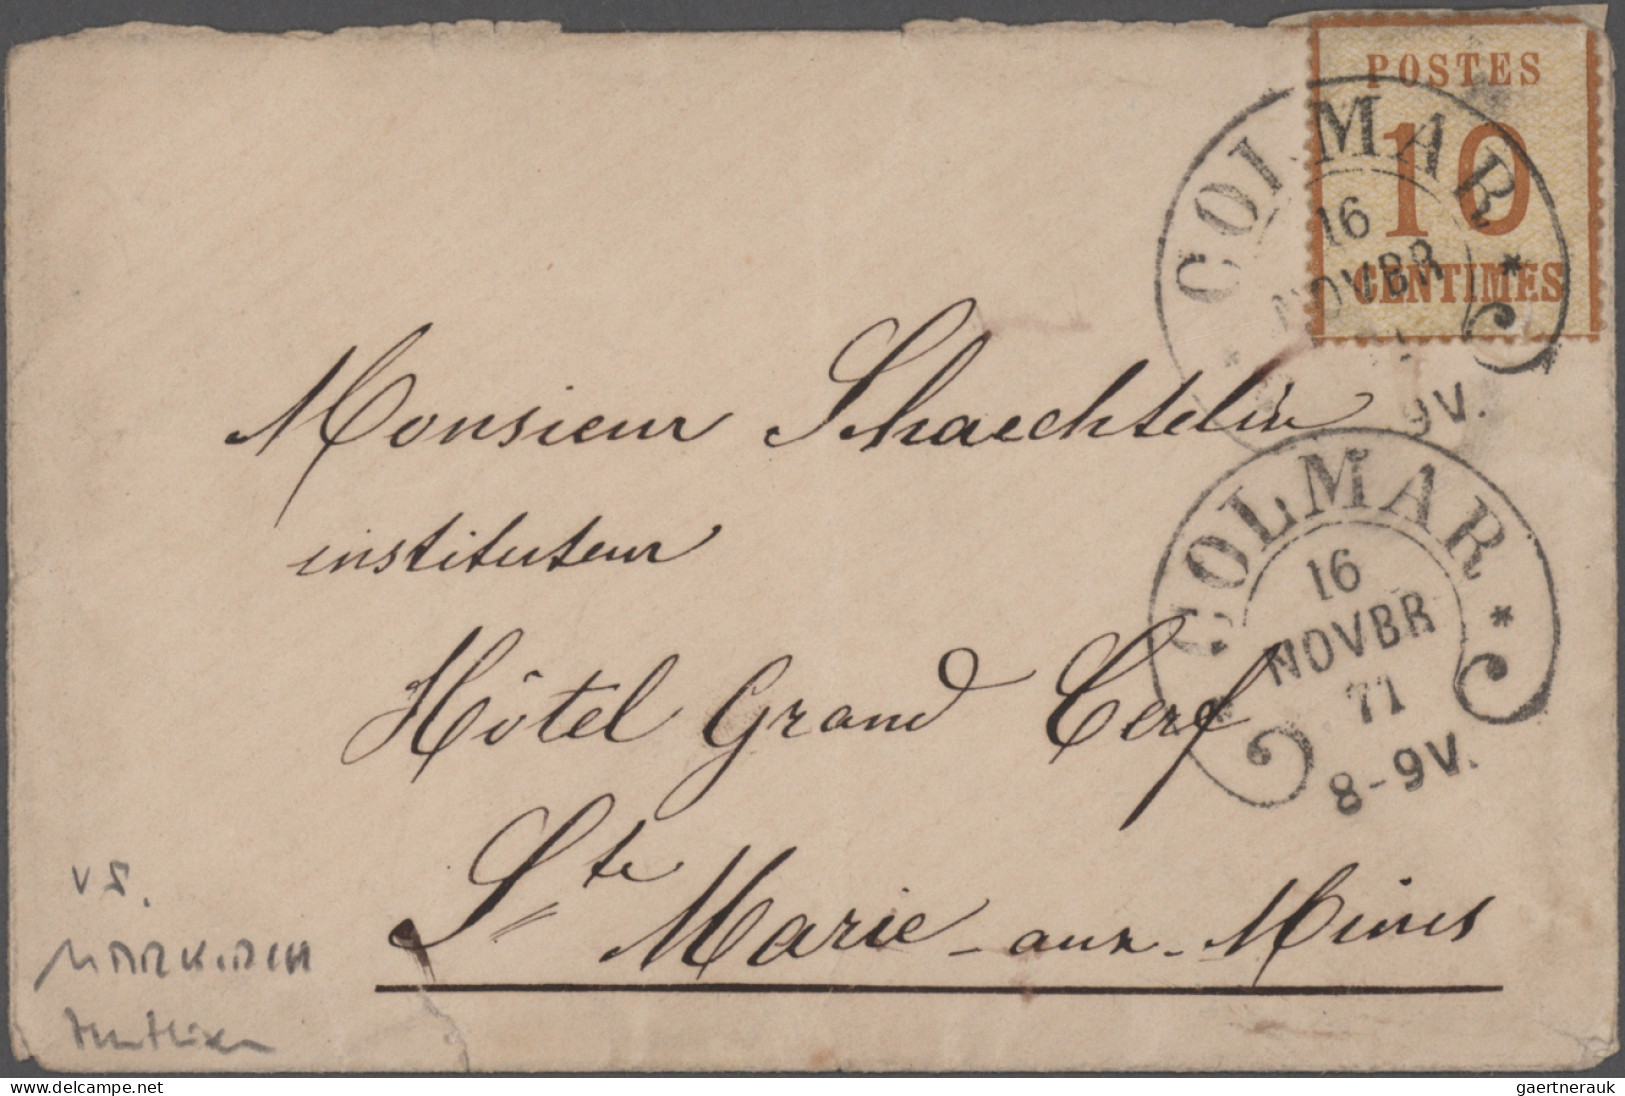 POSTES
10
CENTIMES
COLMAR
16
NOVBR
9V.
Monsieur Schaechtelin
instituteur
Hôtel Grand Cerf
Ste Marie-aux-Mines
COLMAR
16
NOVBR
71
8-9V.
VS.
MARKIRCH
www.delcampe.net
gaertnerauk